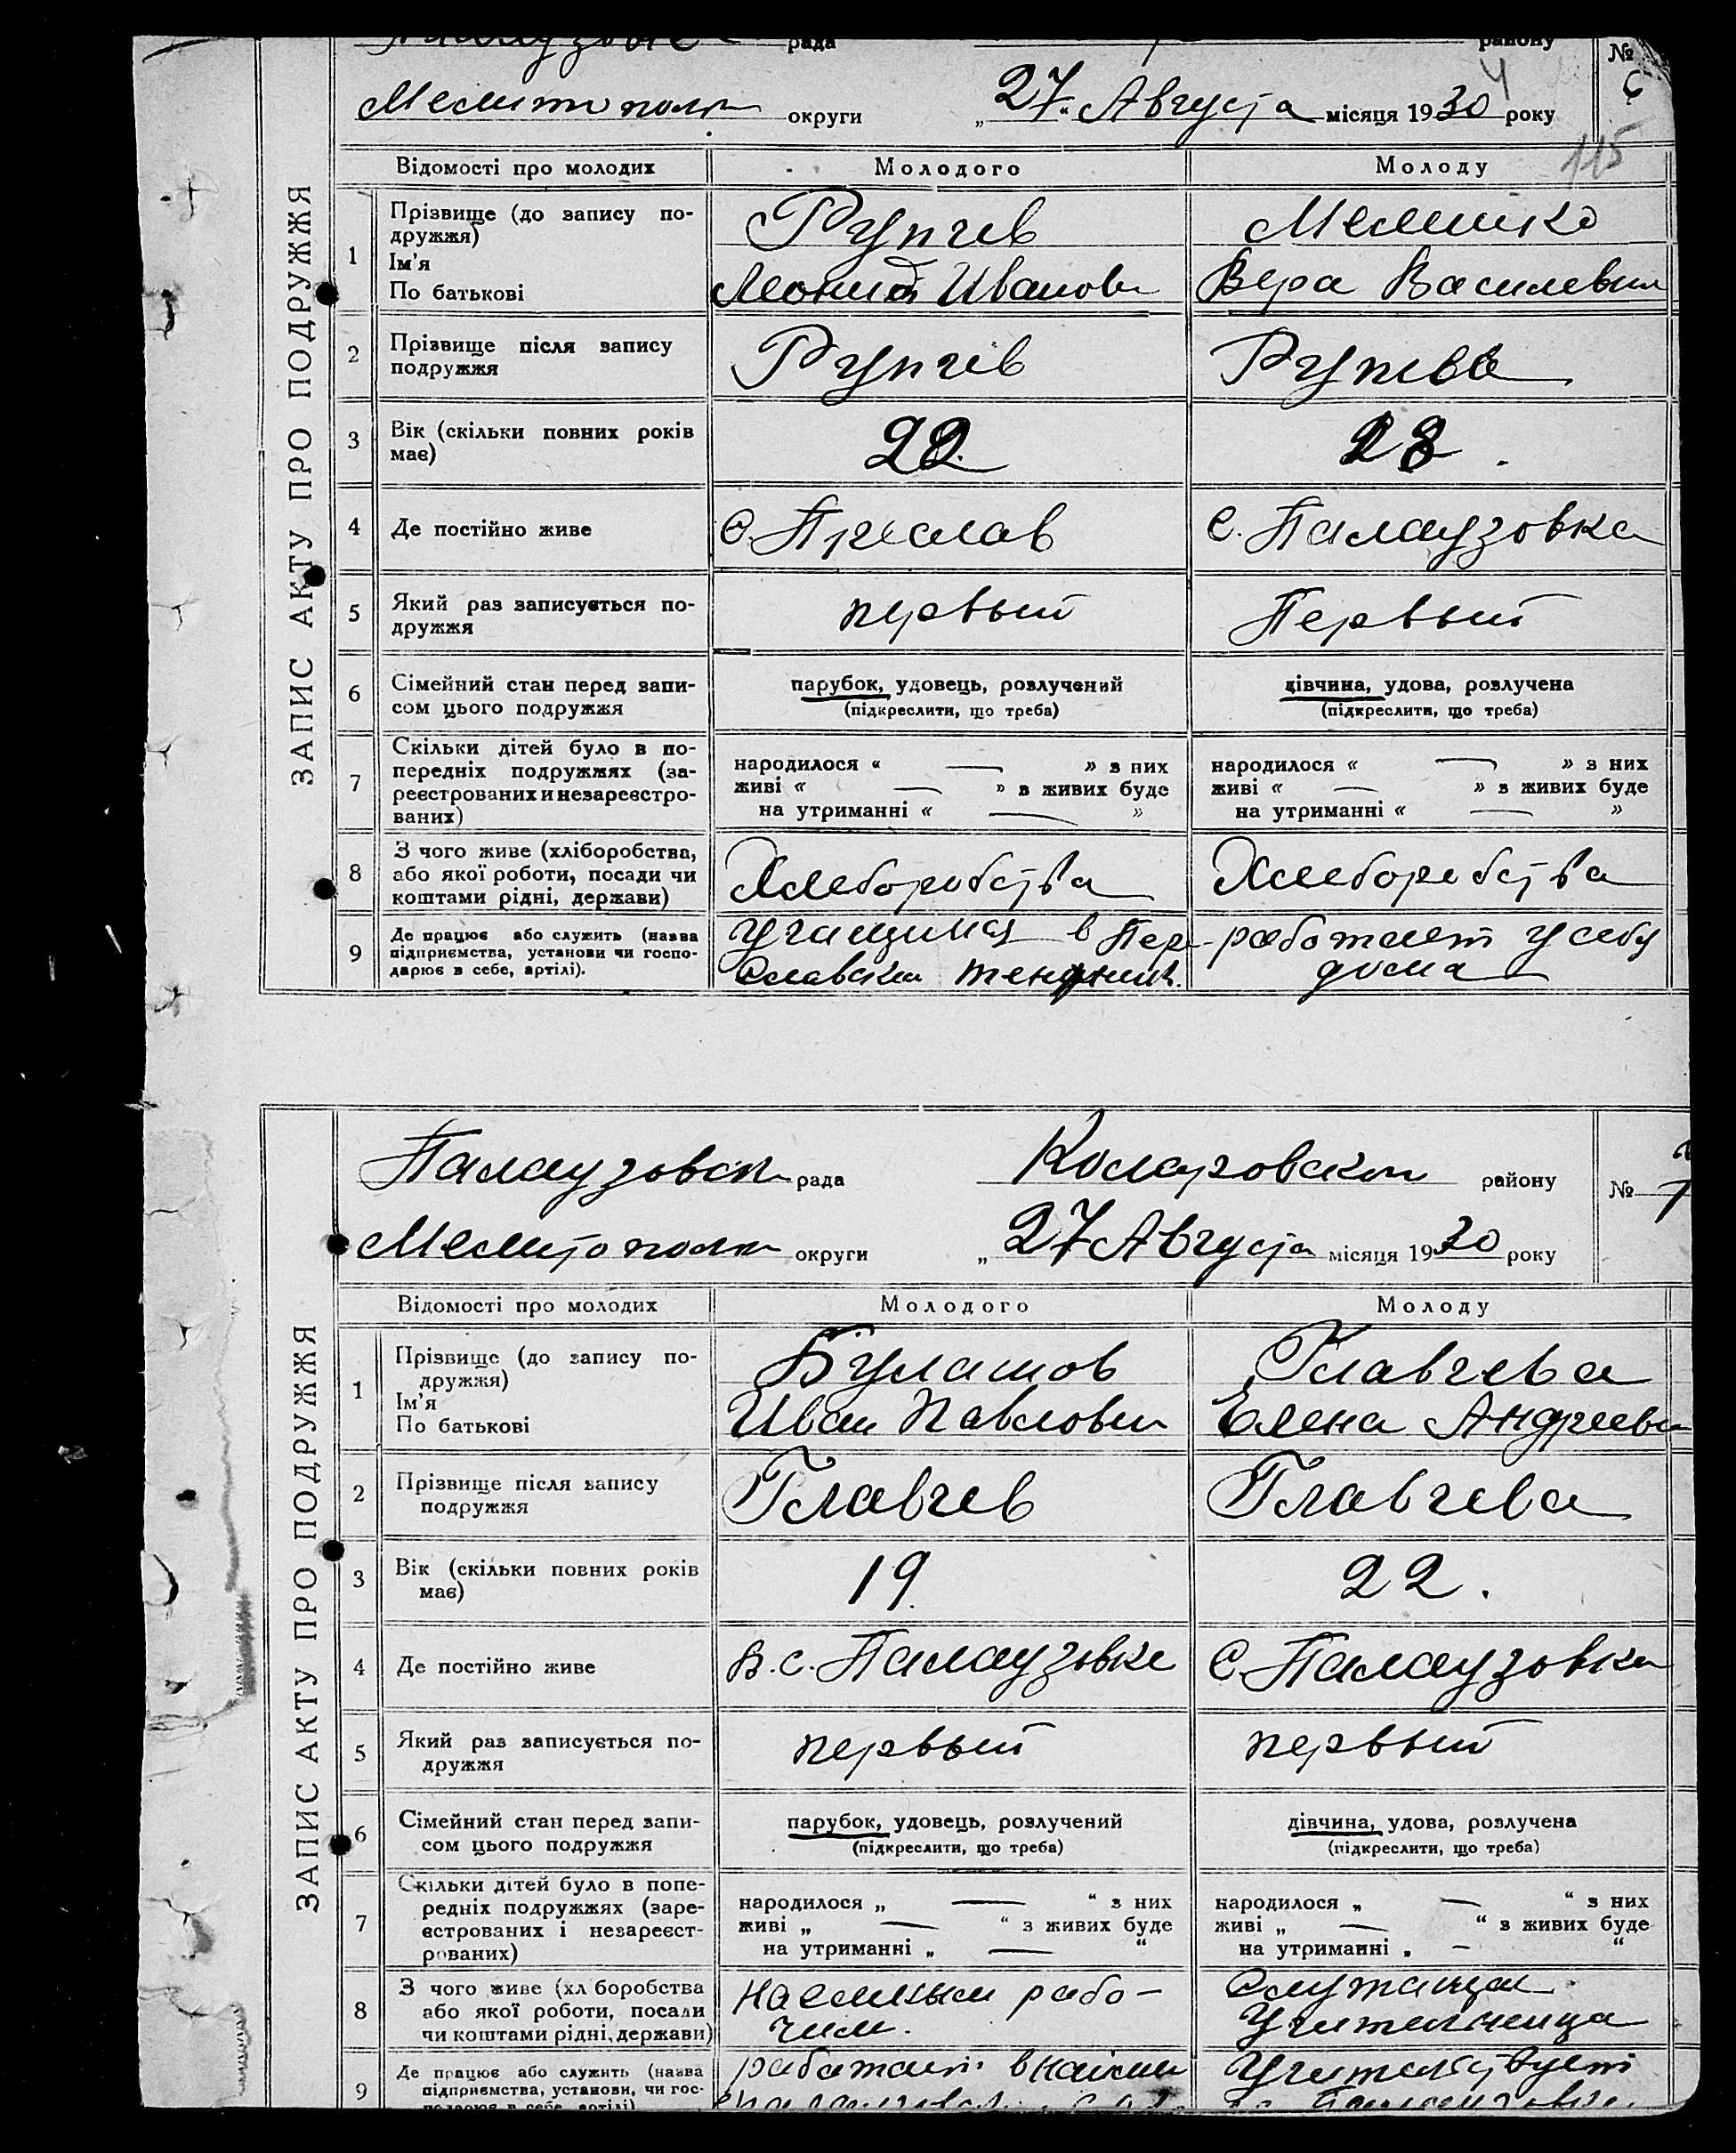 рада району №
Мелитопол округи „27“ Августа місяця 1930 року 6
4
115
ЗАПИС АКТУ ПРО ПОДРУЖЖЯ
Відомості про молодих Молодого Молоду
1 Прізвище (до запису по-
дружжя)
Ім'я
По батькові
Рупчев
Леонид Иванови
Мелишко
Вера Василевны
2 Прізвище після запису
подружжя
Рупчев
3 Вік (скільки повних років
має)
4 Де постійно живе
С. Преслав
С. Палаузовка
5 Який раз записується по-
дружжя
первый
Первый
6 Сімейний стан перед запи-
сом цього подружжя
парубок, удовець, розлучений
(підкреслити, що треба)
дівчина, удова, розлучена
(підкреслити, що треба)
7 Скільки дітей було в по-
передніх подружжях (за-
реєстрованих и незареєстро-
ваних)
народилося « — » з них
живі « — » з живих буде
на утриманні « — »
народилося « — » з них
живі « — » з живих буде
на утриманні « — »
8 З чого живе (хліборобства,
або якої роботи, посади чи
коштами рідні, держави)
Хлеборобства
Хлеборобства
9 Де працює або служить (назва
підприємства, установи чи госпо-
дарює в себе, артілі).
в Пере-
работает у себя
дома
Палаузовск рада Коларовском району №
Мелитопол округи „27 Августа місяця 1930 року
ЗАПИС АКТУ ПРО ПОДРУЖЖЯ
Відомості про молодих Молодого Молоду
1 Прізвище (до запису по-
дружжя)
Ім'я
По батькові
Булашов
Иван Павлович
Главчева
Елена Андреевн
2 Прізвище після запису
подружжя
Главчев
Главчева
3 Вік (скільки повних років
має)
19
22.
4 Де постійно живе
В. с. Палаузовке
С. Палаузовка
5 Який раз записується по-
дружжя
первый
первый
6 Сімейний стан перед запи-
сом цього подружжя
парубок, удовець, розлучений
(підкреслити, що треба)
дівчина, удова, розлучена
(підкреслити, що треба)
7 Скільки дітей було в попе-
редніх подружжях (заре-
єстрованих і незареєст-
рованих)
народилося „ — “ з них
живі „ — “ з живих буде
на утриманні „ — “
народилося „ — “ з них
живі „ — “ з живих буде
на утриманні „ — “
8 З чого живе (хл боробства
або якої роботи, посади
чи коштами рідні, держави)
Наемным рабо-
чим.
Служащая
Учительница
9 Де працює або служить (назва
підприємства, установи, чи гос-
подарює в себе, артілі)
работает
Учительствует